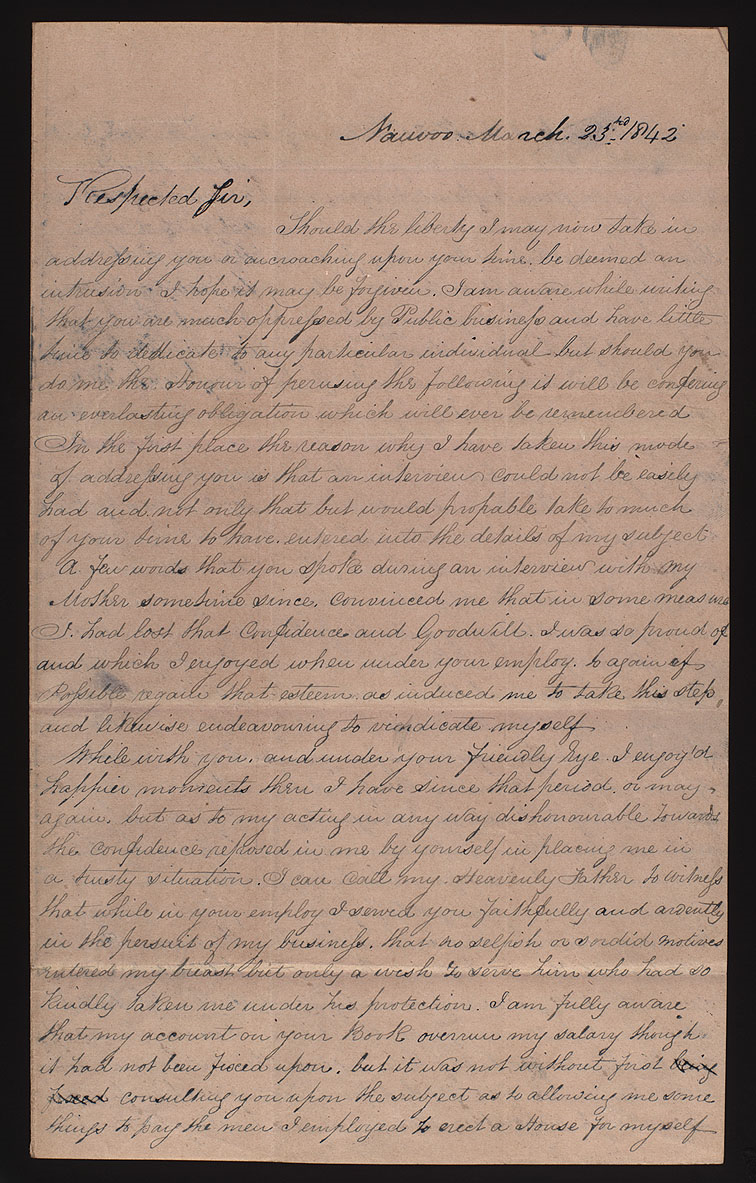 Nauvoo. March. 23rd. 1842
Respected Sir,
Should the liberty I may now take in
addressing you or encroaching upon your time. be deemed an
intrusion I hope it may be forgiven. I am aware while writing
that you are much oppressed by Public business and have little
time to dedicate to any particular individual but should you
do me the Honour of perusing the following it will be confering
an everlasting obligation which will ever be remembered
In the first place the reason why I have taken this mode
of addressing you is that an interview could not be easely
had and not only that but would propable take to much
of your time to have entered into the details of my subject
A few words that you spoke during an interview with my
Mother sometime since. convinced me that in some measure
I. had lost that Confidence and Goodwill. I was so proud of
and which I enjoyed when under your employ. to again if
Possible regain that esteem. as induced me to take this step,
and likewise endeavouring to vindicate myself
While with you. and under your friendly Eye. I enjoy'd
happier moments then I have since that period. or may
again. but as to my acting in any way dishonourable towards
the confidence reposed in me by yourself in placing me in
a trusty situation. I can call my Heavenly Father to witness
that while in your employ I served you faithfully and ardently
in the persuit of my business. that no selfish or sordid motives
entered my breast but only a wish to serve him who had so
kindly taken me under his protection. I am fully aware
that my account on your Book overrun my salary though
it had not been fixed upon. but it was not without first being
fixed consulting you upon the subject as to allowing me some
things to pay the men I employed to erect a House for myself